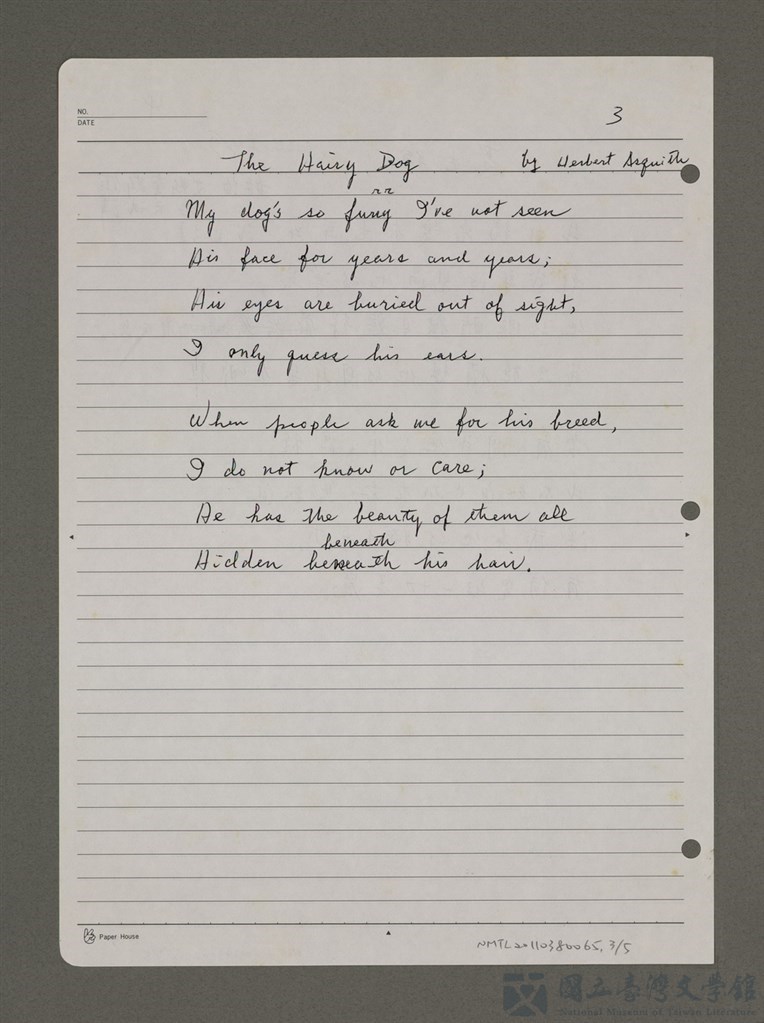 NO.
DATE
3
The Hairy Dog by Herbert Asquith
rr
My dog's so furry I've not seen
His face for years and years;
His eyes are buried out of sight,
I only guess his ears.
When people ask me for his breed,
I do not know or care;
He has the beauty of them all
beneath
Hidden beneath his hair.
Paper House
NMTL20110380065, 3/5
國立臺灣文學館
National Museum of Taiwan Literature